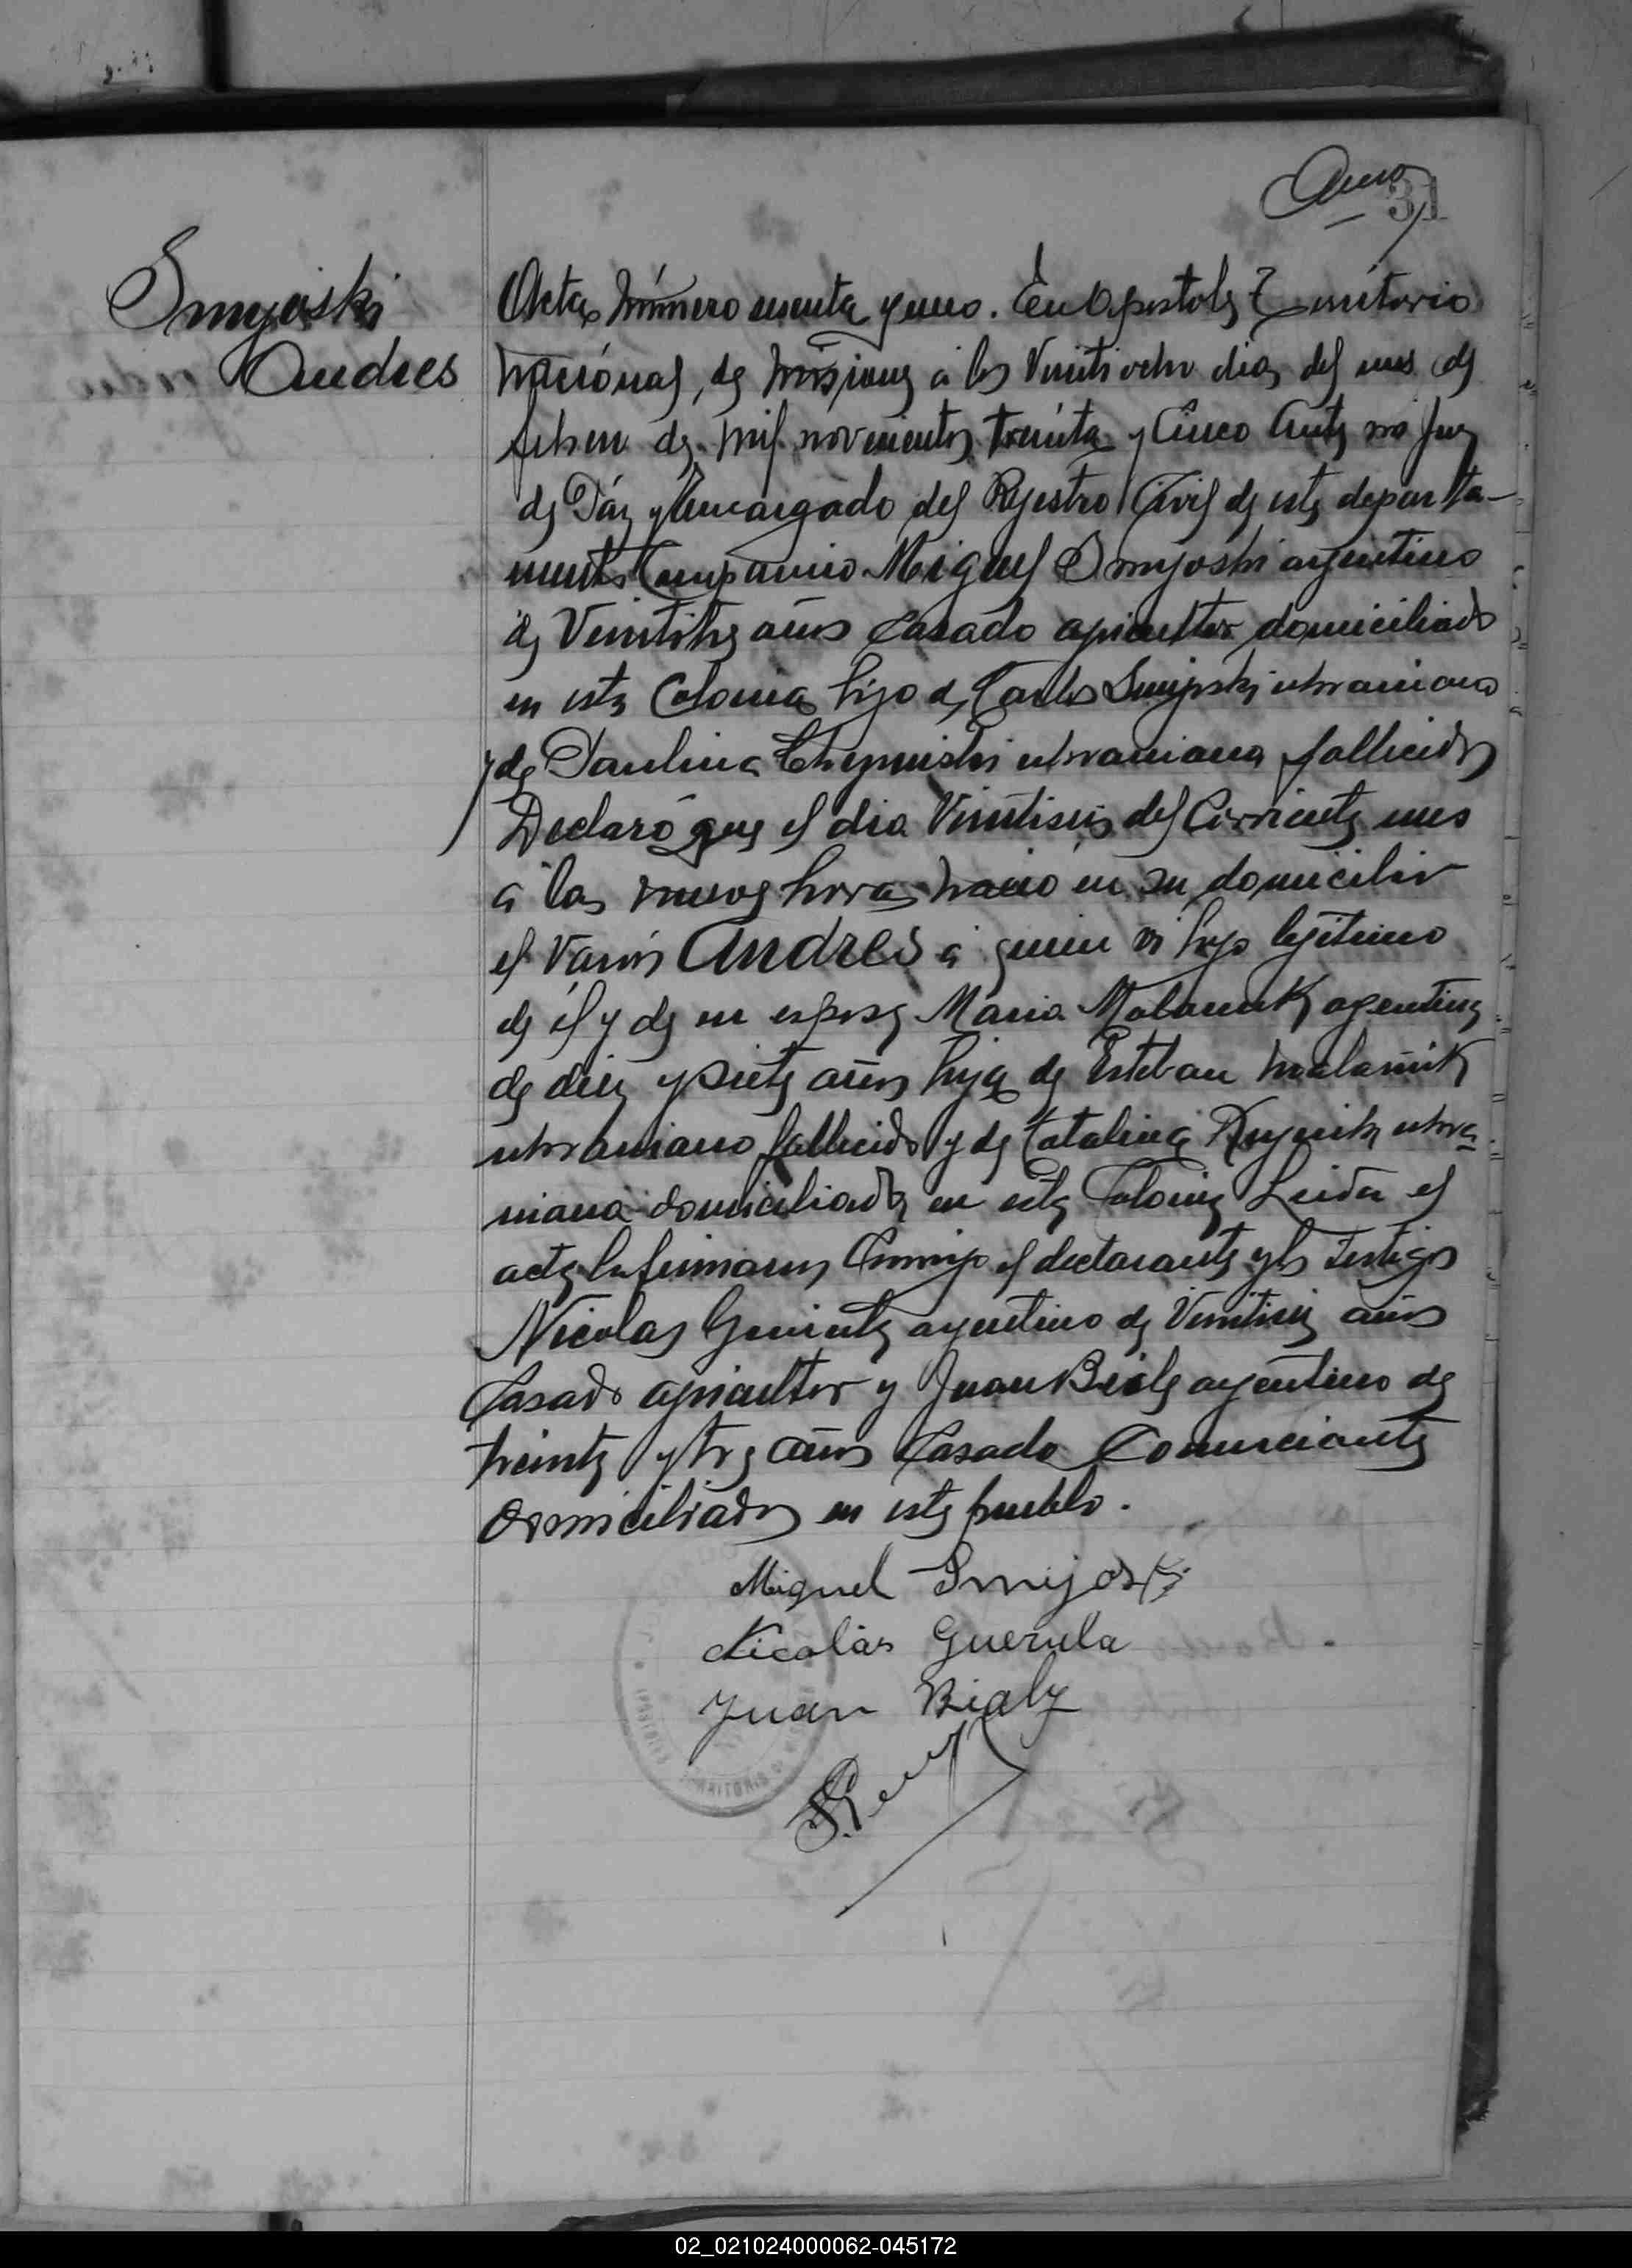 31
Smyoski
Andres
Acta Número sesenta y uno. En Apostoles Territorio
Nacional de Misiones á los Veintiocho dias del mes de
febrero de mil novecientos treinta y Cinco Ante mi Juez
de Páz y Encargado del Rejistro Civil de este departa-
mento Compareció Miguel Smyoski argentino
de Veintitres años Casado agricultor domiciliado
en esta Colonia hijo de Carlos Smyoski ukraniano
y de Paulina ukraniana fallecidos
Declaró que el dia Veintiseis del Corriente mes
á las nueve horas nació en su domicilio
el Varón Andres á quien es hijo lejitimo
de él y de su esposa Maria Malaniuk argentina
de diez y siete años hija de Esteban Malaniuk
ukraniano fallecido y de Catalina ukra
niana domiciliada en esta Colonia Leida el
acta la firmaron Conmigo el declarante y los testigos
Nicolas argentino de Veintiseis años
Casado agricultor y Juan Bialy argentino de
treinta y tres años Casado Comerciante
domiciliados en este pueblo.
Miguel Smijoski
Nicolás Guerula
Juan Bialy
APOSTOLES
TERRITORIO
02_021024000062-045172